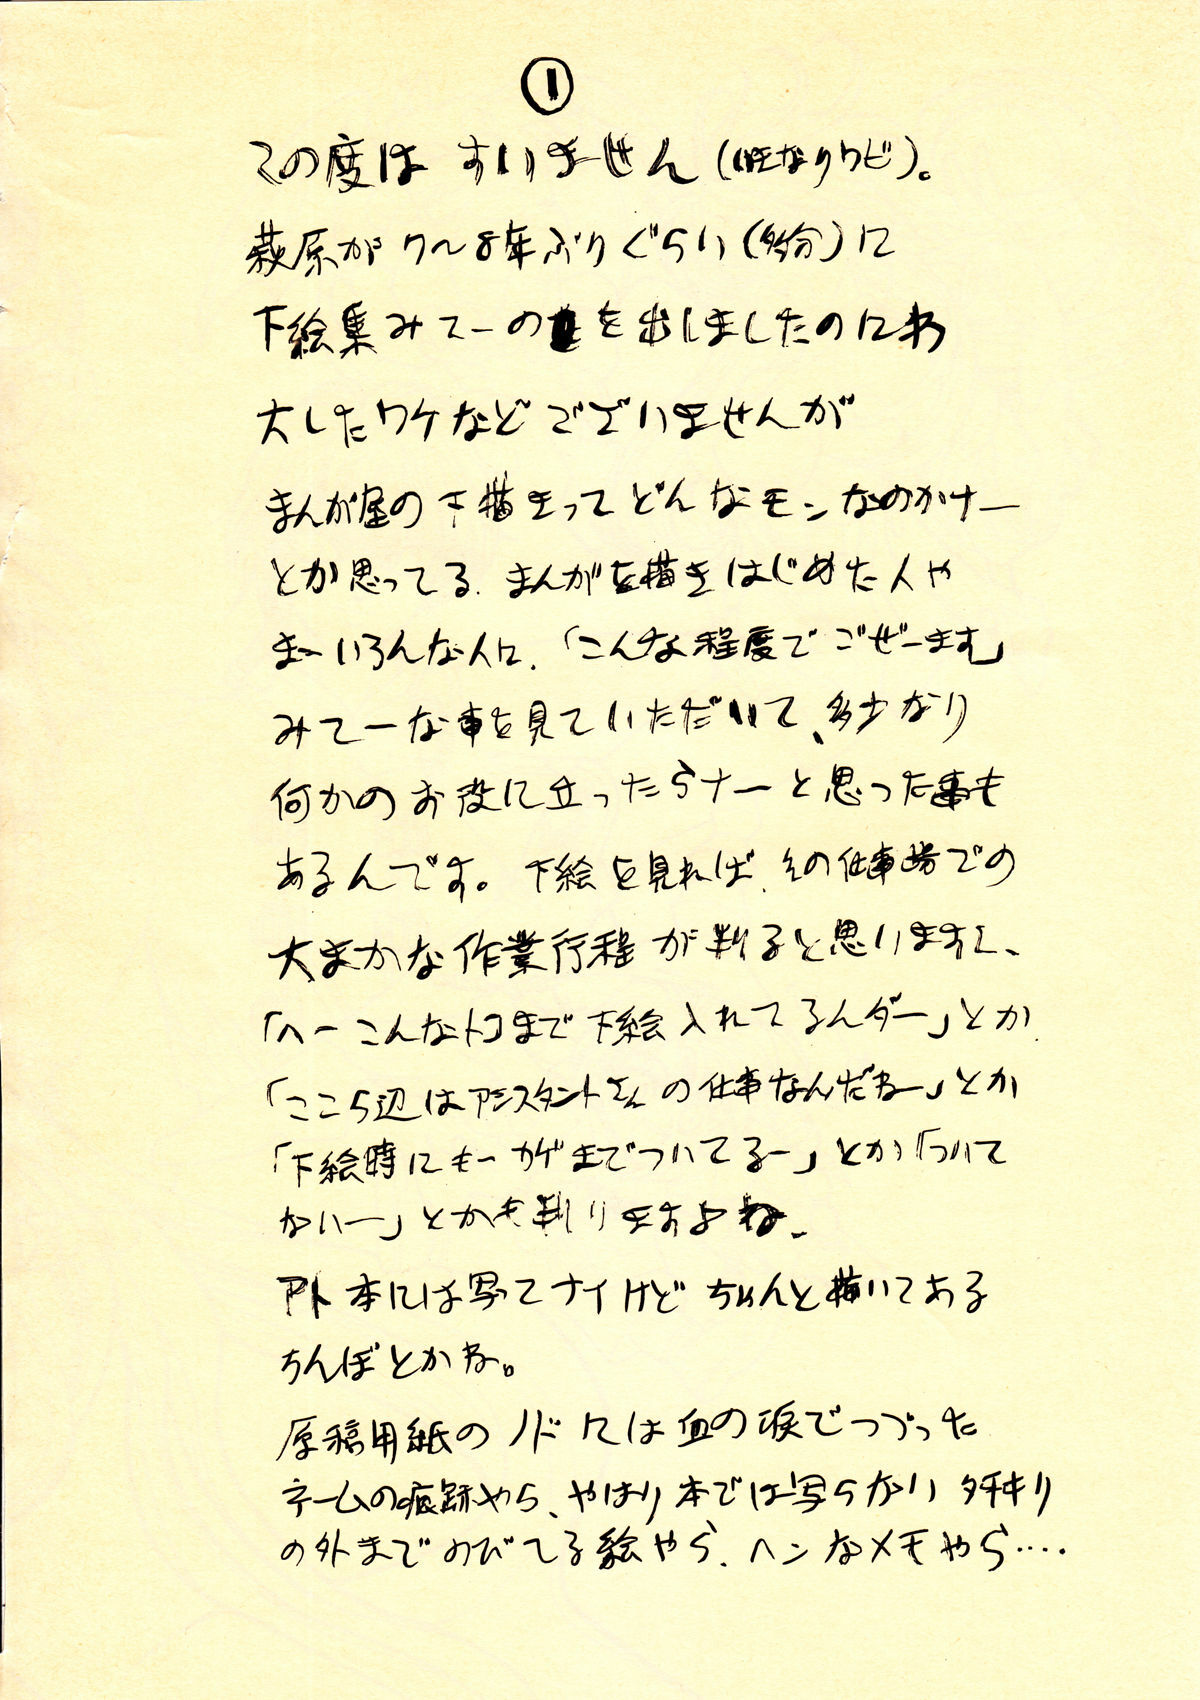 ①
この度は すいません (いきなりワビ)。
萩原が 7〜8年ぶりぐらい(多分)に
下絵集みてーのを出しましたのにわ
大したワケなどございませんが
まんが屋の下描きってどんなモンなのかナー
とか思ってる、まんがを描きはじめた人や
まーいろんな人に、「こんな程度でごぜーます」
みてーな事を見ていただいて、多少なり
何かのお役に立ったらナーと思った事も
あるんです。下絵を見れば、その仕事場での
大まかな作業行程が判ると思いますし、
「へーこんなトコまで下絵入れてるんダー」とか
「ここら辺はアシスタントさんの仕事なんだねー」とか
「下絵時にもーカゲまでついてるー」とか「ついて
ないー」とかも判りますよね、
アト本には写ってナイけどちゃんと描いてある
ちんぽとかね。
原稿用紙のノドには血の涙でつづった
ネームの痕跡やら、やはり本では写らないタチキリ
の外までのびてる絵やら、ヘンなメモやら‥‥